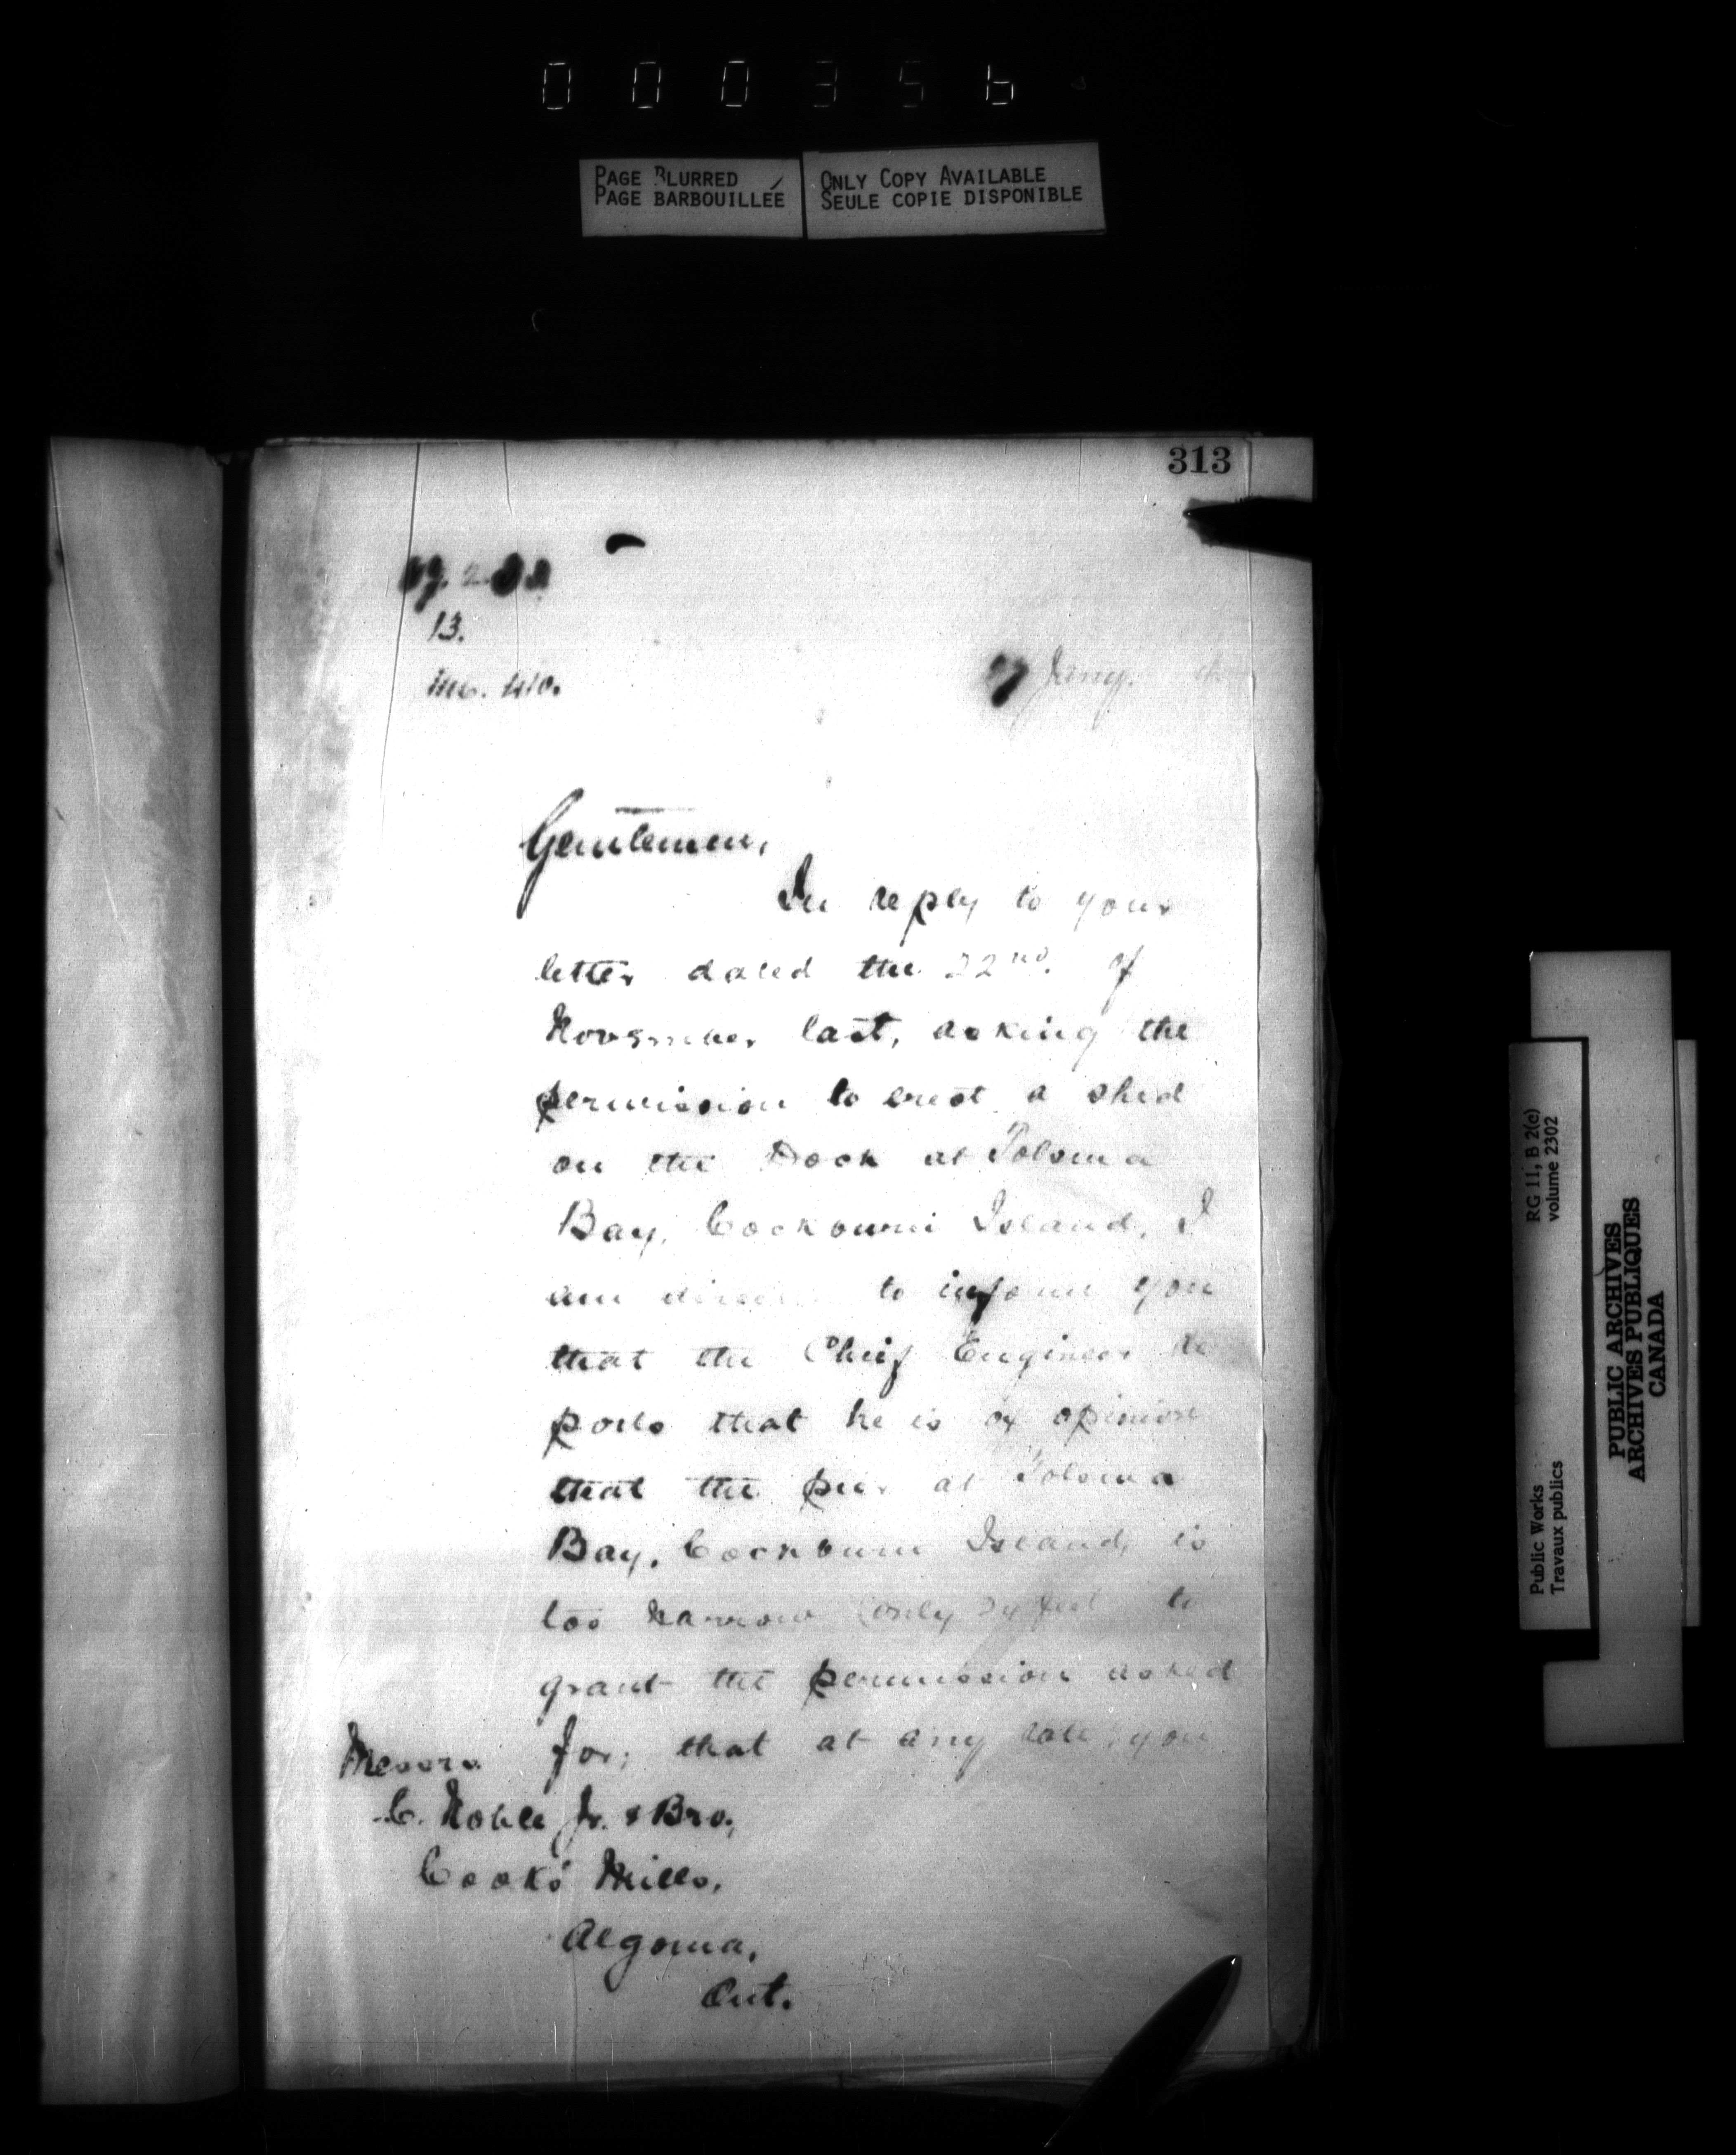 000356
PAGE BLURRED
PAGE BARBOUILLÉE
ONLY COPY AVAILABLE
SEULE COPIE DISPONIBLE
313
13.
Jany.
Gentlemen,
In reply to your
letter dated the 22nd. of
November last, asking the
permission to erect a shed
on the Dock at Tolsma
Bay, Cockburn Island, I
am directed to inform you
that the Chief Engineer re
ports that he is of opinion
that the pier at Tolsma
Bay, Cockburn Island, is
too narrow (only 24 feet to
grant the permission asked
for; that at any rate, you
Messrs
C. Noble Jr. & Bro.,
Cooks' Mills,
Algoma,
Ont.
RG 11, B 2(c)
volume 2302
Public Works
Travaux publics
PUBLIC ARCHIVES
ARCHIVES PUBLIQUES
CANADA